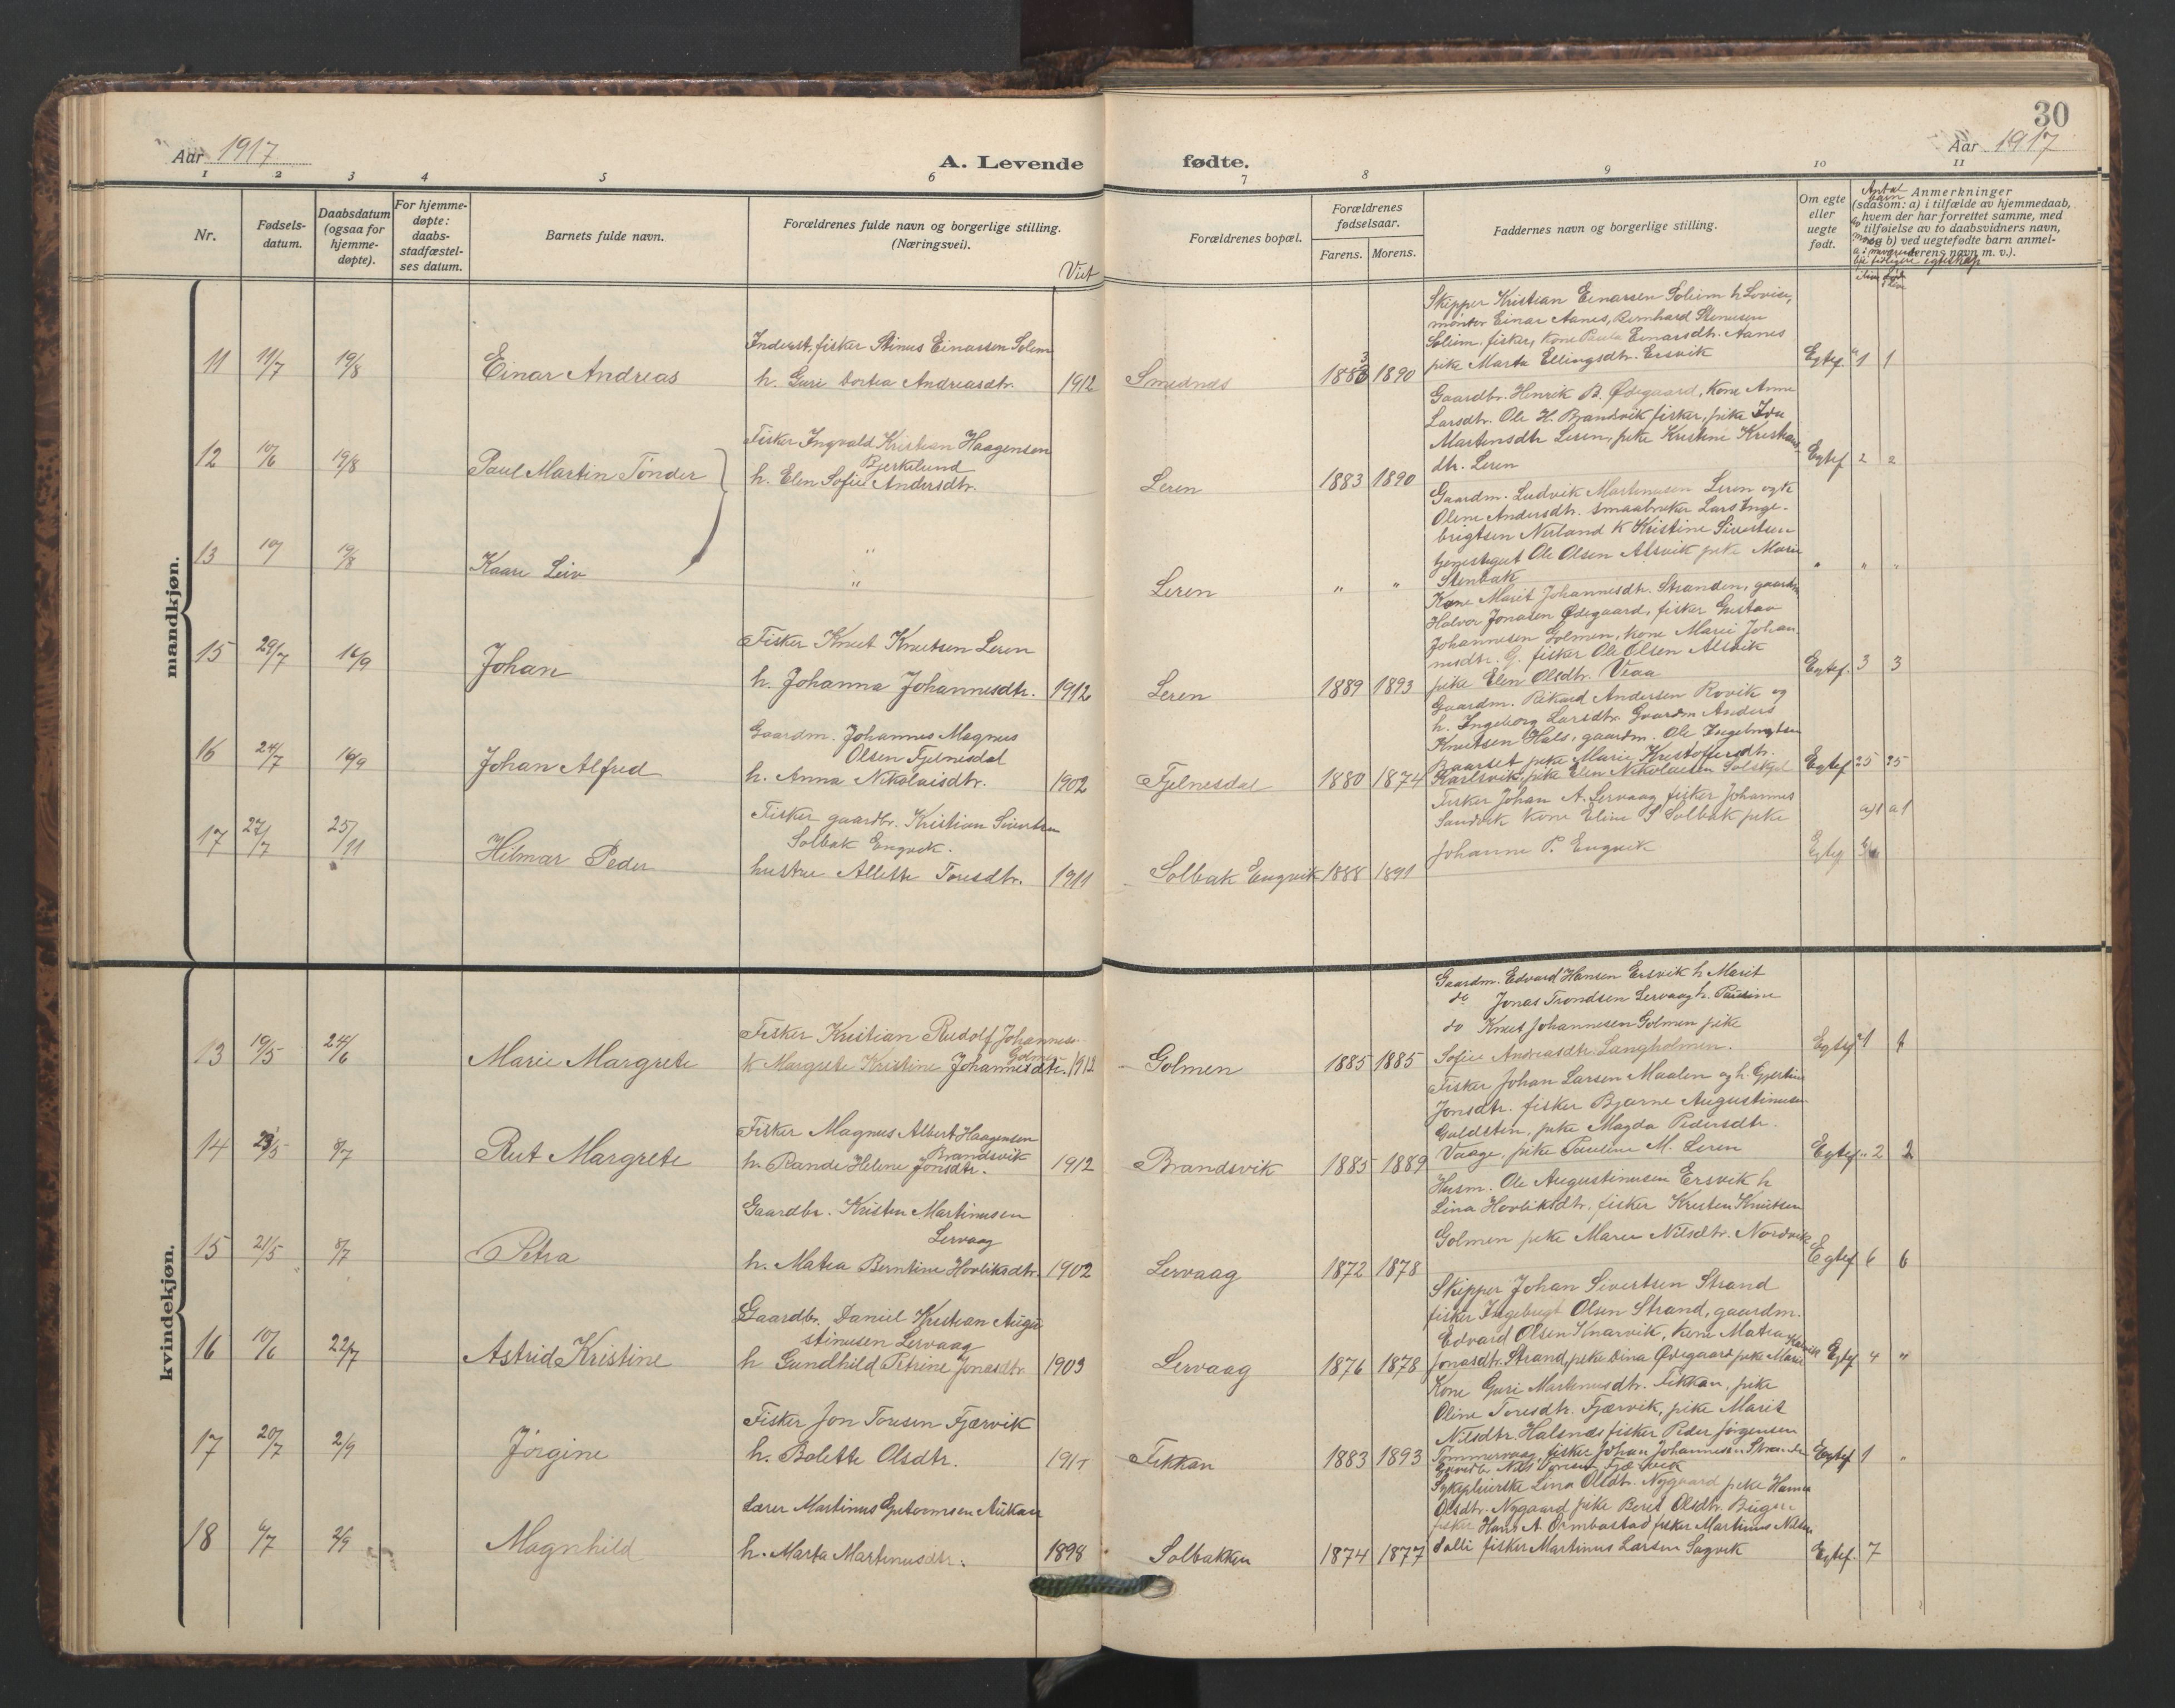 30
Aar 1917
A. Levende fødte.
Aar 1917
1 2 3 4 5 6 7 8 9 10 11
Nr.
Fødsels-
datum.
Daabsdatum
(ogsaa for
hjemme-
døpte).
For hjemme-
døpte:
daabs-
stadfæstel-
ses datum.
Barnets fulde navn.
Forældrenes fulde navn og borgerlige stilling.
(Næringsvei).
Viet
Forældrenes bopæl.
Forældrenes
fødselsaar.
Farens. Morens.
Faddernes navn og borgerlige stilling.
Om egte
eller
uegte
født.
Antal
barn
Anmerkninger
(saasom: a) i tilfælde av hjemmedaab,
hvem der har forrettet samme, med
tilføielse av to daabsvidners navn,
og b) ved uegtefødte barn anmel-
derens navn m. v.).
mandkjøn.
11 11/7 19/8 Einar Andreas
Inderst, fisker Stinus Einarsen Solem
h. Guri Dortea Andreasdtr. 1912
Smednes 1883 1890
Skipper Kristian Einarsen Soleim h Lovise,
montør Einar Aanes, Bernhard Stenusen
Soleim, fisker, Kone Paula Einarsdtr. Aanes
pike Marta Ellingsdtr. Ersvik
Egtef. 1 1
12 10/6 19/8 Paul Martin Tønder
Fisker Ingvald Kristian Haagensen
Bjerkelund
h. Elen Sofie Andersdtr.
Leren 1883 1890
Gaardbr. Henrik B. Ødegaard, Kone Anne
Larsdtr. Ole H. Brandvik fisker, pike Ida
Martinsdtr Leren, pike Kristine Kristians
dtr. Leren
Egtef 2 2
13 10/ 19/8 Kaare Leiv
" "
Leren " "
Gaardm. Ludvik Martinusen Leren og k
Oline Andersdtr. Smaabruker Lars Inge-
brigtsen Nerland K Kristine Sivertsen
tjenestegut Ole Olsen Alsvik pike Marie
Stenbak
" " "
15 29/7 16/9 Johan
Fisker Knut Knutsen Leren
h. Johanna Johannesdtr. 1912
Leren 1889 1893
Kone Marit Johannesdtr. Stranden, gaardm
Halvor Jonasen Ødegaard, fisker Gustav
Johannesen Golmen, kone Marie Johan
nesdtr. G. fisker Ole Olsen Alsvik
pike Elen Olsdtr. Veaa
Egtef. 3 3
16 24/7 16/9 Johan Alfred
Gaardm. Johannes Magnus
Olsen Fjelnesdal
h. Anna Nikolaisdtr. 1902
Fjelnesdal 1880 1874
Gaardm. Rikard Andersen Rovik og
h. Ingeborg Larsdtr. Gaardm Anders
Knutsen Hals, gaardm. Ole Ingebrigtsen
Baarset pike Marie Kristoffersdtr.
Karlsvik, pike Elen Nikolaisen Solskjel
Egtef 5 5
17 27/7 25/11 Hilmar Peder
Fisker gaardbr. Kristian Sivertsen
Solbak Engvik.
hustru Allette Toresdtr. 1911
Solbak Engvik 1888 1891
Fisker Johan A. Lervaag fisker Johannes
Sandvik kone Eline S Solbak pike
Johanne P. Engvik
Egtef a)1 a1
kvindekjøn.
13 19/5 24/6 Marie Margrete
Fisker Kristian Rudolf Johannes
Golmen
k Margrete Kristine Johannesdtr. 1912
Golmen 1885 1885
Gaardm. Edvard Hansen Ersvik h Marit
do Jonas Trondsen Lervaag h. Pauline
do Knut Johannesen Golmen pike
Sofie Andreasdtr. Langholmen.
Egtef 1 1
14 23/5 8/7 Rut Margrete
Fisker Magnus Albert Haagensen
Brandsvik
h. Randi Helene Jonsdtr. 1912
Brandsvik 1885 1889
Fisker Johan Larsen Maalen og h. Gjertine
Jonsdtr. fisker Bjarne Augustinusen
Guldsten, pike Magda Pedersdtr.
Vaage, pike Pauline M. Leren
Egtef. 2 2
15 21/5 8/7 Petra
Gaardbr. Kristen Martinusen
Lervaag
h. Matea Berntine Hovliksdtr. 1902
Lervaag 1872 1878
Husm. Ole Augustinusen Ersvik h
Lina Hovliksdtr, fisker Kristen Knutsen
Golmen pike Maren Nilsdtr. Nordvik
Egtef 6 6
16 10/6 22/7 Astrid Kristine
Gaardbr. Daniel Kristian Augu
stinusen Lervaag
h Gundhild Petrine Jonasdtr. 1903
Lervaag 1876 1878
Skipper Johan Sivertsen Strand
fisker Ingebrigt Olsen Strand, gaardm.
Edvard Olsen Knarvik, kone Matea
Jonasdtr. Strand, pike Dina Ødegaard pike Marie
Egtef 4 "
17 20/7 2/9 Jørgine
Fisker Jon Toresen Fjærvik
h. Bolette Olsdtr. 1917
Fikkan 1883 1893
Kone Guri Martinusdtr. Fikkan, pike
Oline Toresdtr. Fjærvik, pike Marit
Nilsdtr. Halsnes fisker Peder Jørgensen
Tømmervaag, fisker Johan Johannesen Stranden
Gaardbr. Nils Toresen Fjærvik
Egtef 1 "
18 6/7 2/9 Magnhild
Lærer Martinus Aukan
h. Marta Martinusdtr. 1898
Solbakken 1874 1877
Sykepleierske Lina Olsdtr. Nygaard pike Hanna
Olsdtr. Nygaard pike Berit Olsdtr.
fisker Hans A. Ormbostad fisker Martinus Nilsen
fisker Martinus Larsen Sagvik
Egtef. 7